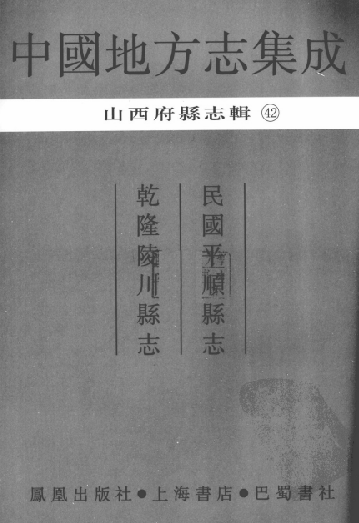 中國地方志集成
山西府縣志輯 ㊷
民國平順縣志
乾隆陵川縣志
鳳凰出版社●上海書店●巴蜀書社